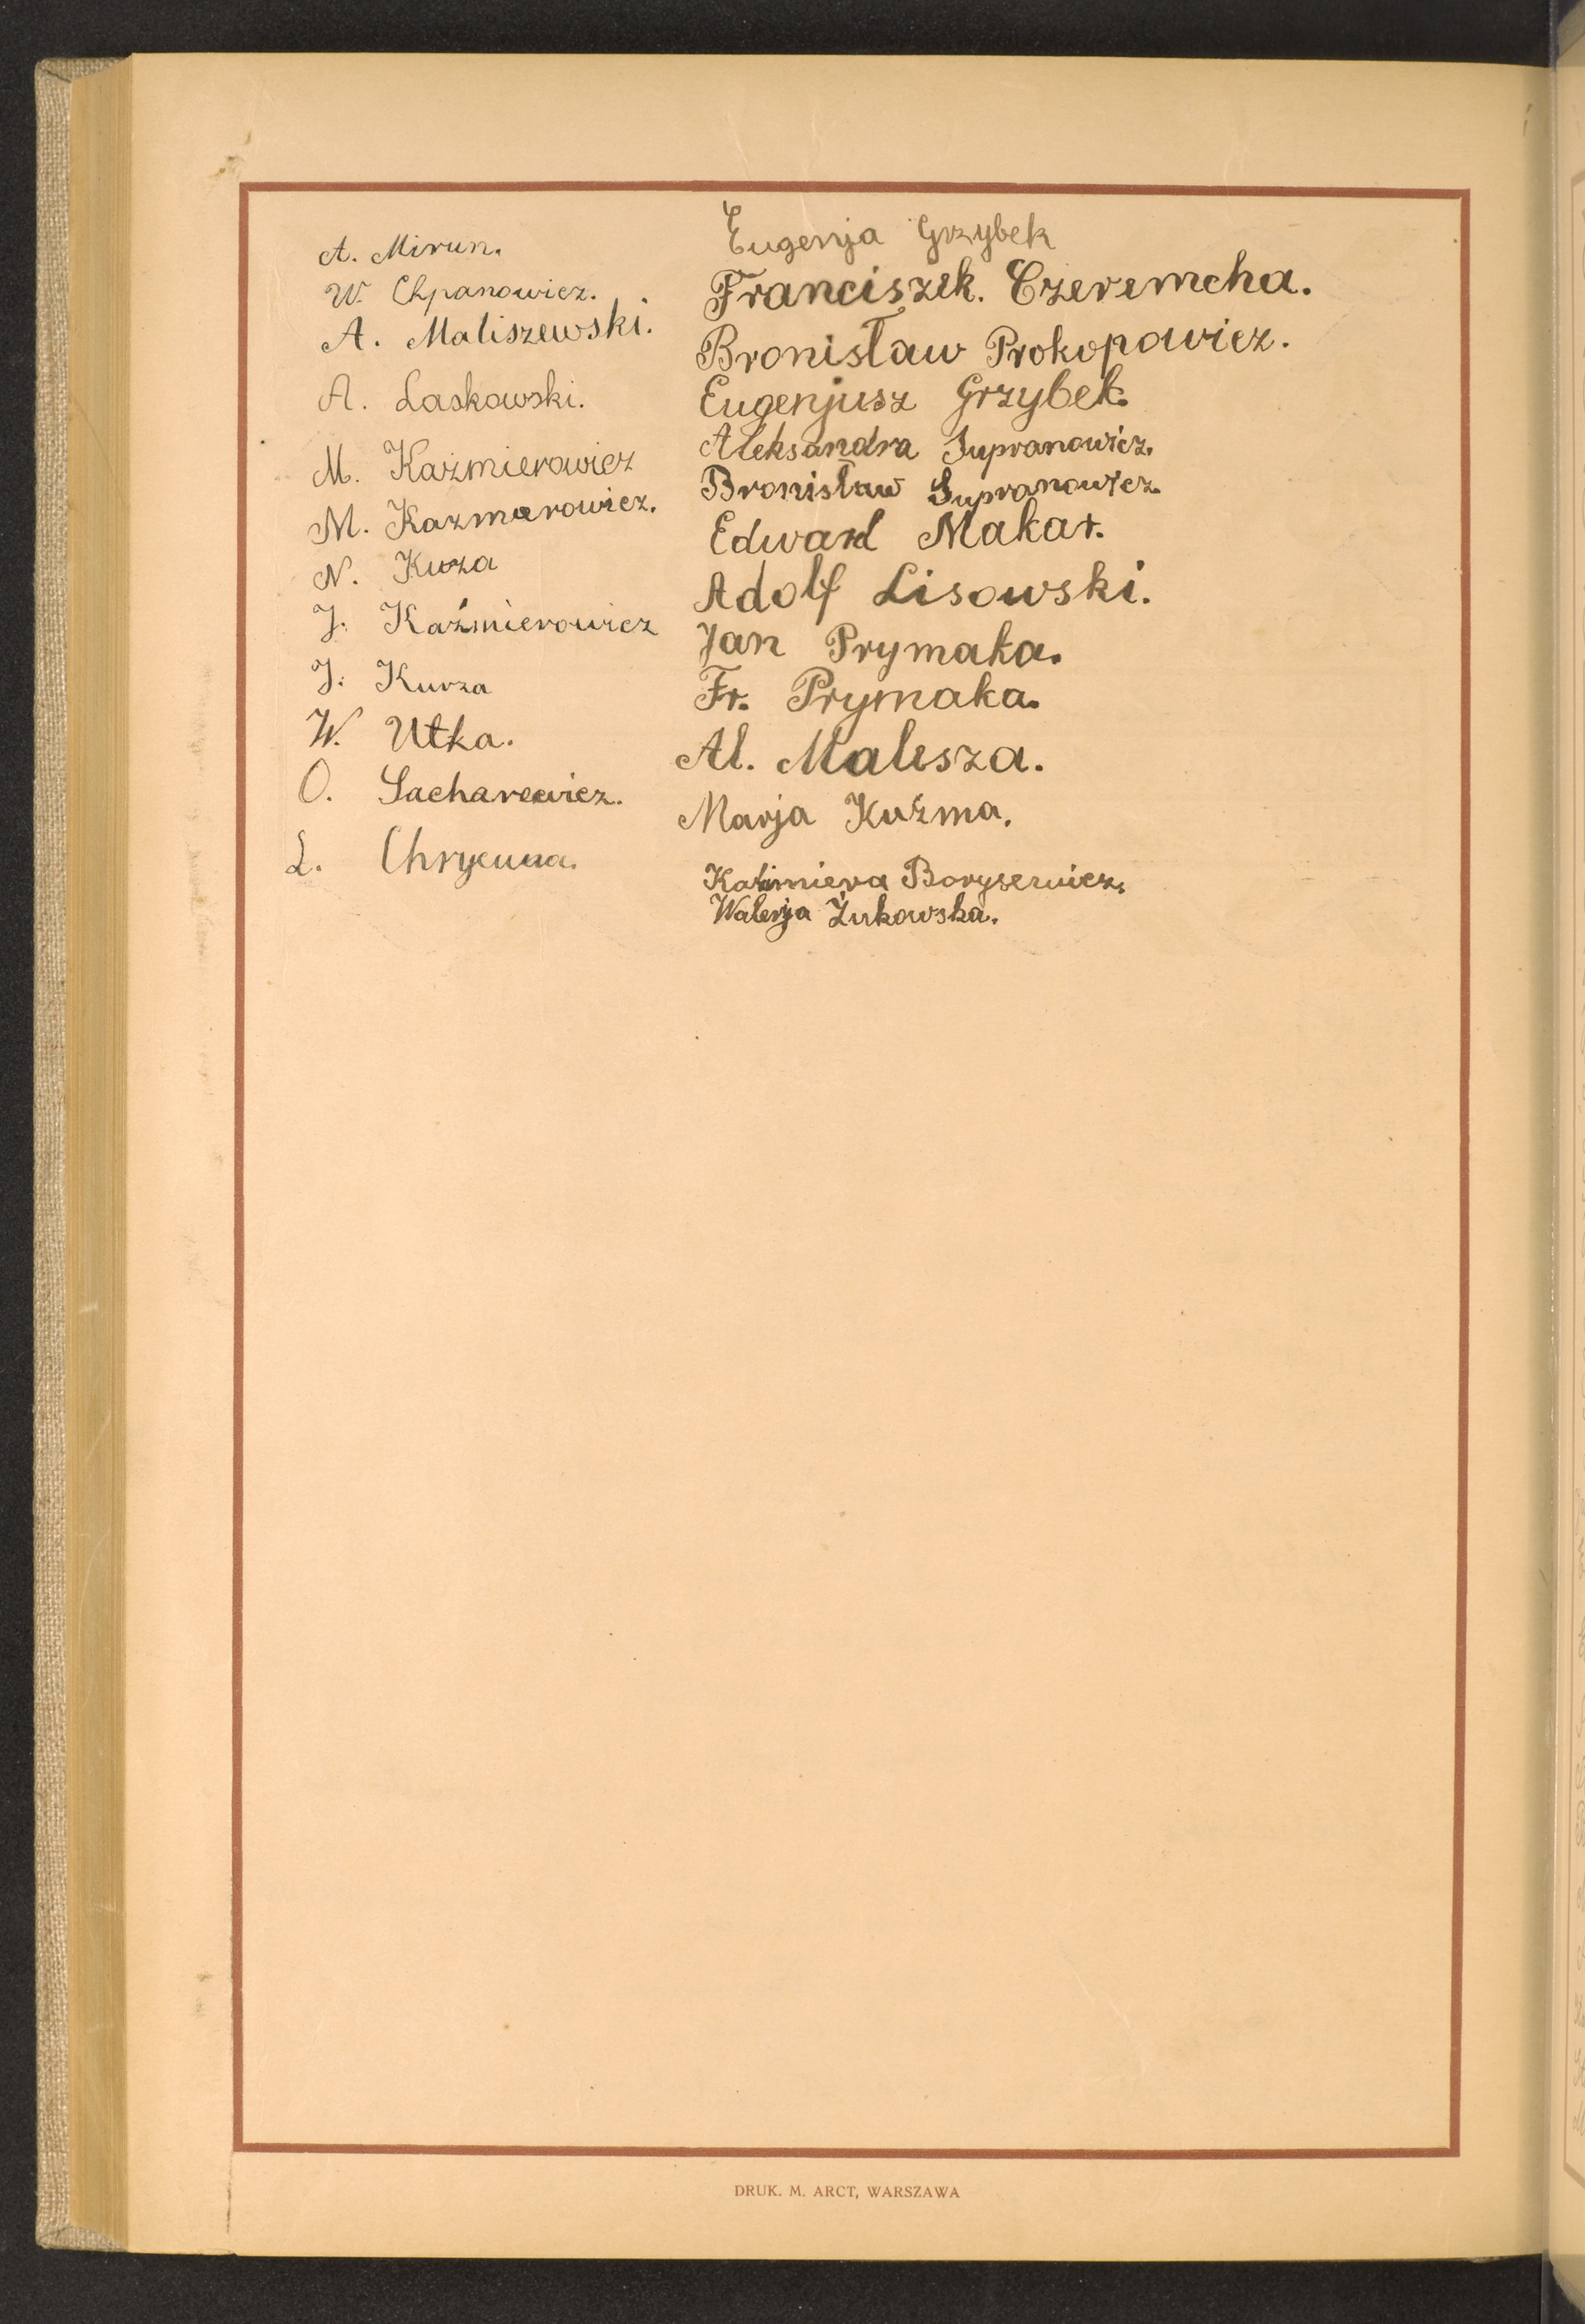 A. Mirun.
W. Chpanowicz.
A. Maliszewski.
A. Laskowski.
M. Kaźmierowicz
M. Kazmerowicz.
N. Kuza
J. Kaźmierowicz
J. Kurza
W. Utka.
O. Sacharewicz.
L.
Eugenja Grzybek
Franciszek. Czeremcha.
Bronisław Prokopowicz.
Eugenjusz Grzybek.
Aleksandra Supranowicz.
Bronisław Supranowicz.
Edward Makar.
Adolf Lisowski.
Jan Prymaka.
Fr. Prymaka.
Al. Malesza.
Marja Kuźma.
Kazimiera Borysewicz.
Walerja Żukowska.
DRUK. M. ARCT, WARSZAWA